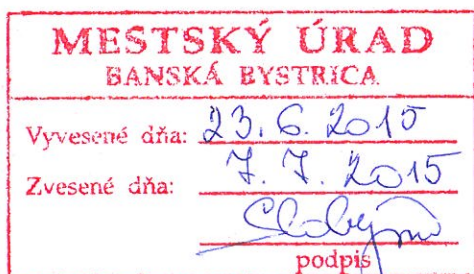 MESTSKÝ ÚRAD
BANSKÁ BYSTRICA
Vyvesené dňa: 23. 6. 2015
Zvesené dňa: 7. 7. 2015
podpis